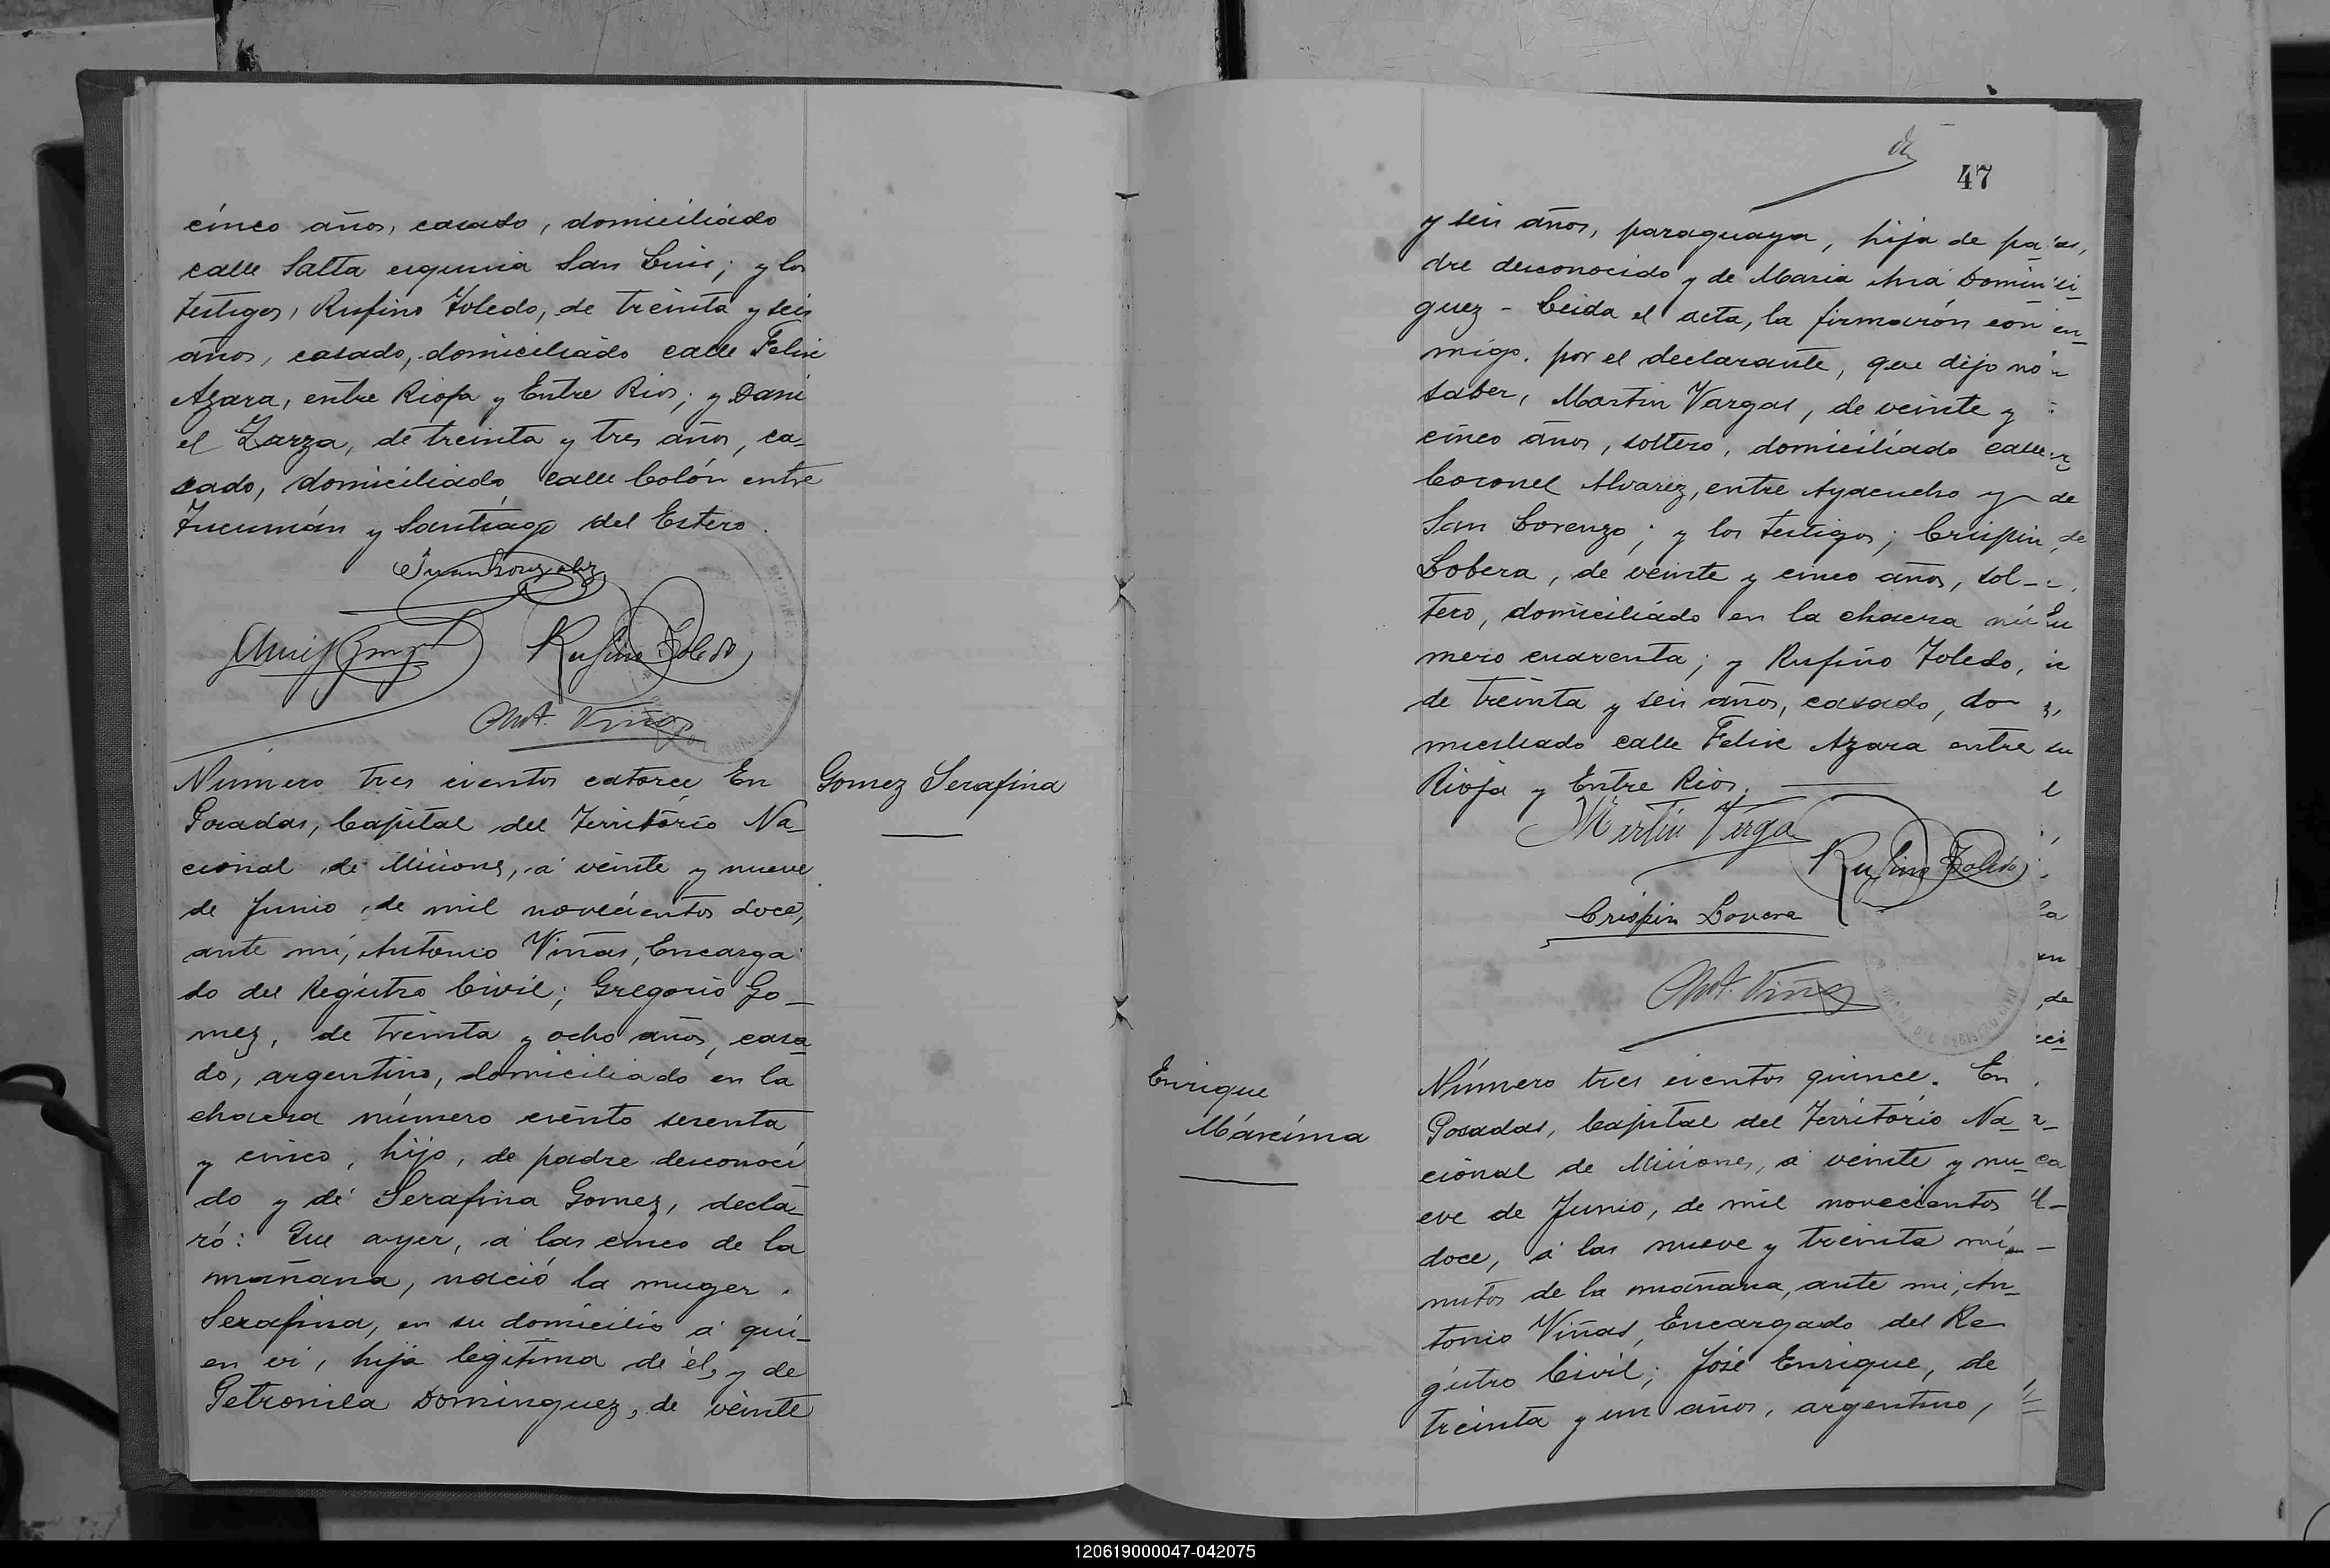 cinco años, casado, domiciliado
calle Salta esquina San Luis; y los
testigos, Rufino Toledo, de treinta y seis
años, casado, domiciliado calle Felix
Azara, entre Rioja y Entre Rios; y Dani
el Zarza, de treinta y tres años, ca-
sado, domiciliado calle Colón entre
Tucumán y Santiago del Estero.
Rufino Toledo
Ant. Viñas
Número tres cientos catorce En
Posadas, Capital del Territorio Na-
cional de Misiones, á veinte y nueve
de Junio, de mil novecientos doce,
ante mí, Antonio Viñas, Encarga
do del Registro Civil; Gregorio Go-
mez, de treinta y ocho años, casa-
do, argentino, domiciliado en la
chacra número ciento sesenta
y cinco, hijo, de padre desconoci
do y de Serafina Gomez, decla-
ró: Que ayer, á las cinco de la
mañana, nació la muger
Serafina, en su domicilio á qui-
en vi, hija legitima de él, y de
Petronila Dominguez, de veinte
Gomez Serafina
47
y seis años, paraguaya, hija de pa-
dre desconocido y de Maria Domin-
guez - Leida el acta, la firmarón con
migo, por el declarante, que dijo no
saber, Martin Vargas, de veinte y
cinco años, soltero, domiciliado calle
Coronel Alvarez, entre Ayacucho y
San Lorenzo; y los testigos; Crispin
Lobera, de veinte y cinco años, sol-
tero, domiciliado en la chacra nú
mero cuarenta; y Rufino Toledo,
de treinta y seis años, casado, do
miciliado calle Felix Azara entre
Rioja y Entre Rios.
Martin Varga
Rufino Toledo
Crispin Lovera
Ant. Viñas
Enrique
Máxima
Número tres cientos quince. En
Posadas, Capital del Territorio Na-
cional de Misiones, á veinte y nu-
eve de Junio, de mil novecientos
doce, á las nueve y treinta mi-
nutos de la mañana, ante mi, An-
tonio Viñas, Encargado del Re
gistro Civil; José Enrique, de
treinta y un años, argentino,
120619000047-042075